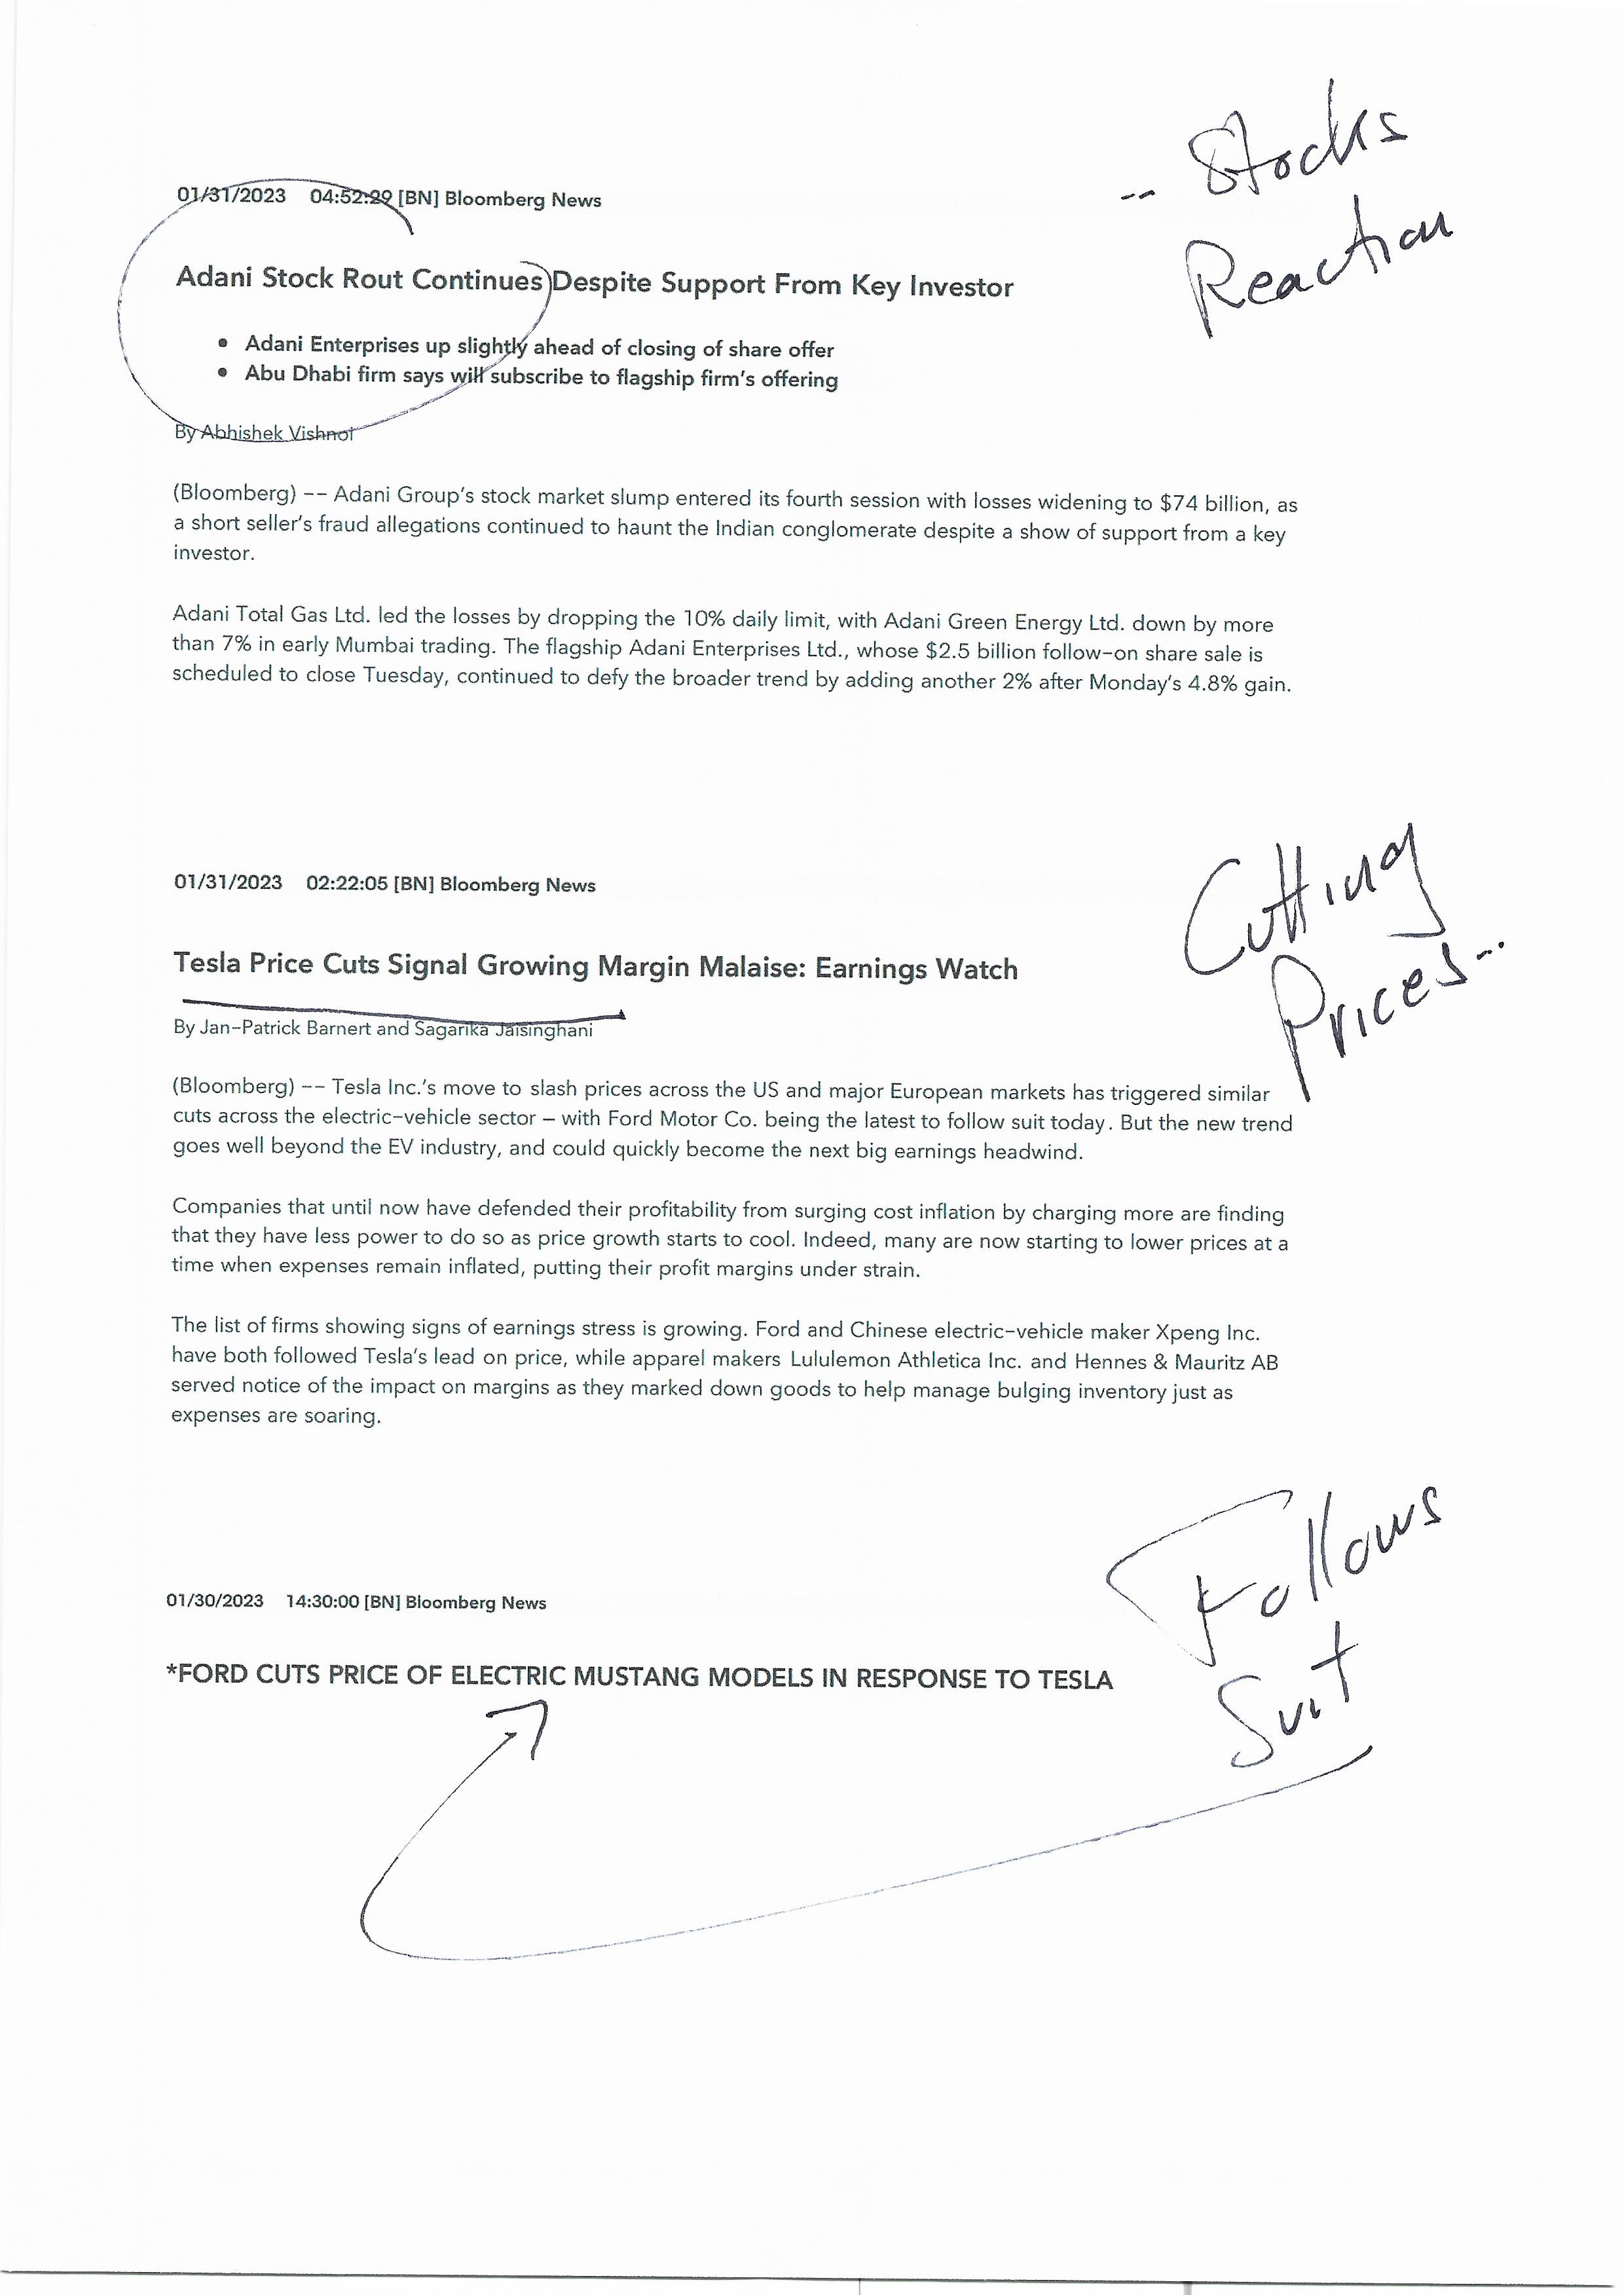 -- Stocks
Reaction
01/31/2023 04:52:29 [BN] Bloomberg News
Adani Stock Rout Continues Despite Support From Key Investor
• Adani Enterprises up slightly ahead of closing of share offer
• Abu Dhabi firm says will subscribe to flagship firm's offering
By Abhishek Vishnoi
(Bloomberg) -- Adani Group's stock market slump entered its fourth session with losses widening to $74 billion, as
a short seller's fraud allegations continued to haunt the Indian conglomerate despite a show of support from a key
investor.
Adani Total Gas Ltd. led the losses by dropping the 10% daily limit, with Adani Green Energy Ltd. down by more
than 7% in early Mumbai trading. The flagship Adani Enterprises Ltd., whose $2.5 billion follow-on share sale is
scheduled to close Tuesday, continued to defy the broader trend by adding another 2% after Monday's 4.8% gain.
Cutting
Prices...
01/31/2023 02:22:05 [BN] Bloomberg News
Tesla Price Cuts Signal Growing Margin Malaise: Earnings Watch
By Jan-Patrick Barnert and Sagarika Jaisinghani
(Bloomberg) -- Tesla Inc.'s move to slash prices across the US and major European markets has triggered similar
cuts across the electric-vehicle sector – with Ford Motor Co. being the latest to follow suit today. But the new trend
goes well beyond the EV industry, and could quickly become the next big earnings headwind.
Companies that until now have defended their profitability from surging cost inflation by charging more are finding
that they have less power to do so as price growth starts to cool. Indeed, many are now starting to lower prices at a
time when expenses remain inflated, putting their profit margins under strain.
The list of firms showing signs of earnings stress is growing. Ford and Chinese electric-vehicle maker Xpeng Inc.
have both followed Tesla's lead on price, while apparel makers Lululemon Athletica Inc. and Hennes & Mauritz AB
served notice of the impact on margins as they marked down goods to help manage bulging inventory just as
expenses are soaring.
Follows
Suit
01/30/2023 14:30:00 [BN] Bloomberg News
*FORD CUTS PRICE OF ELECTRIC MUSTANG MODELS IN RESPONSE TO TESLA